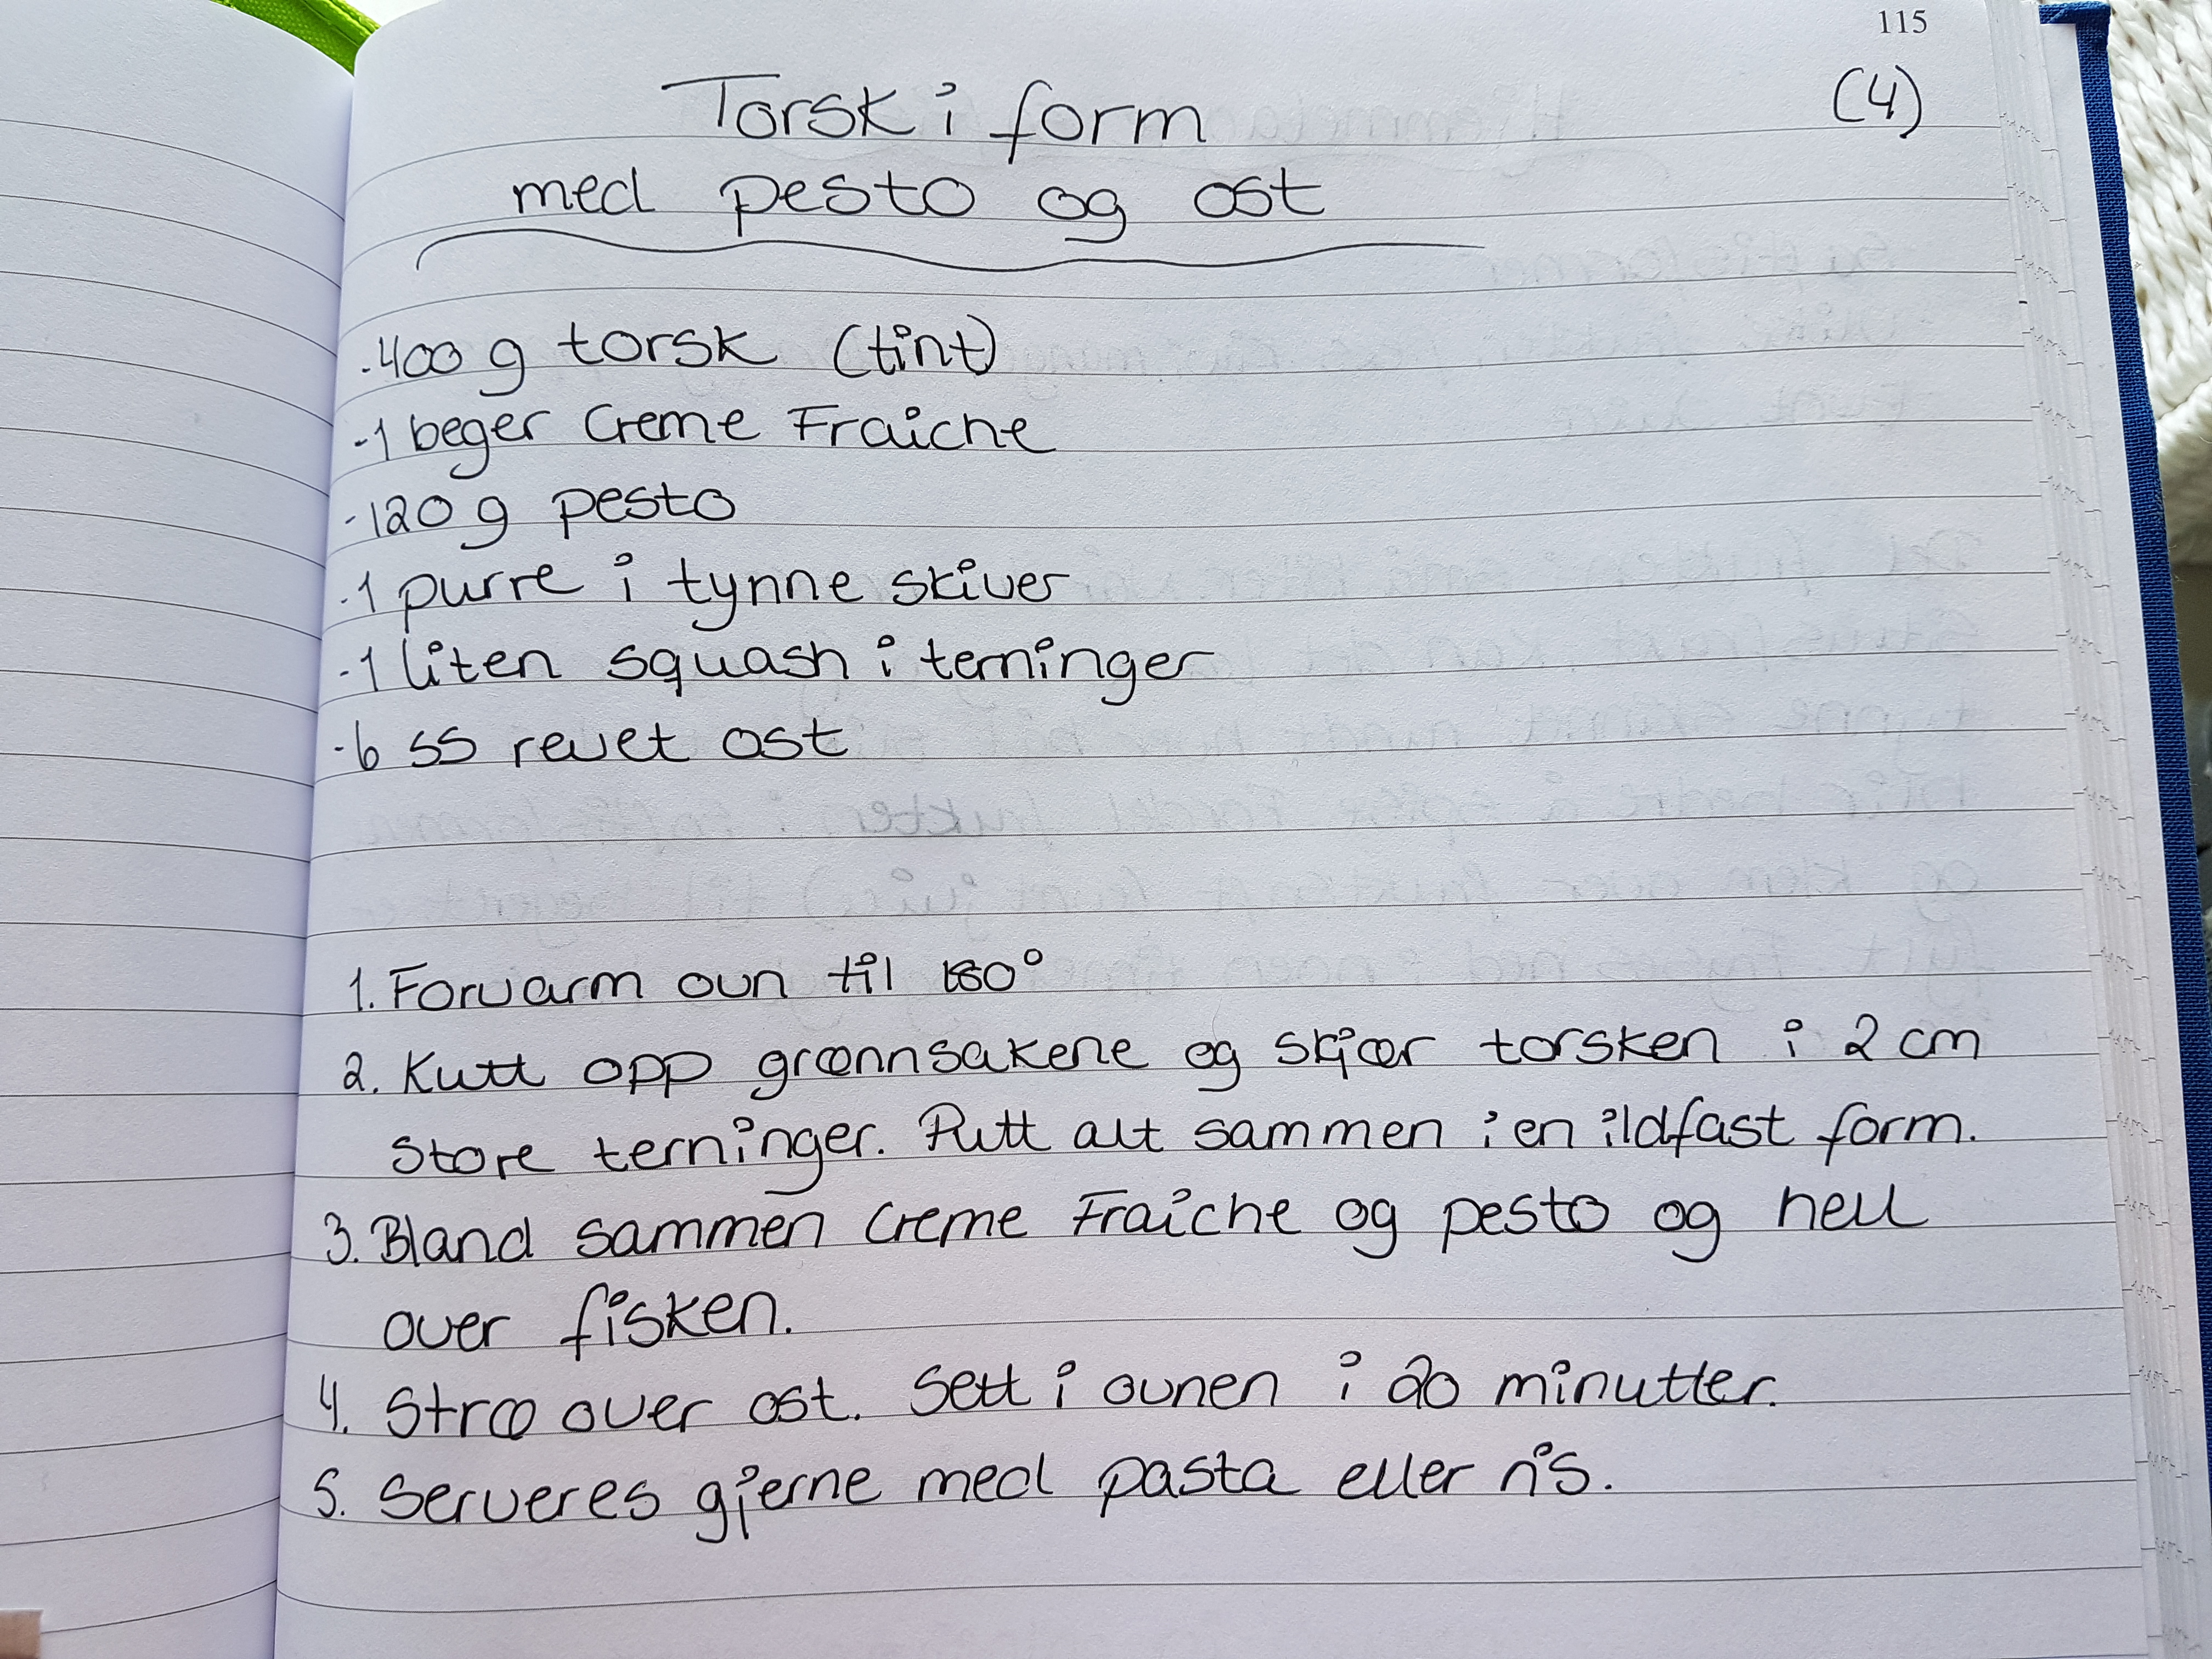 115
(4)
Torsk i form
med pesto og ost
-400 g torsk (tint)
-1 beger Creme Fraiche
-120 g pesto
-1 purre i tynne skiver
-1 liten squash i terninger
-6 ss revet ost
1. Forvarm ovn til 180°
2. Kutt opp grønnsakene og skjær torsken i 2 cm
store terninger. Putt alt sammen i en ildfast form.
3. Bland sammen Creme Fraiche og pesto og hell
over fisken.
4. Strø over ost. Sett i ovnen i 20 minutter.
5. Serveres gjerne med pasta eller ris.